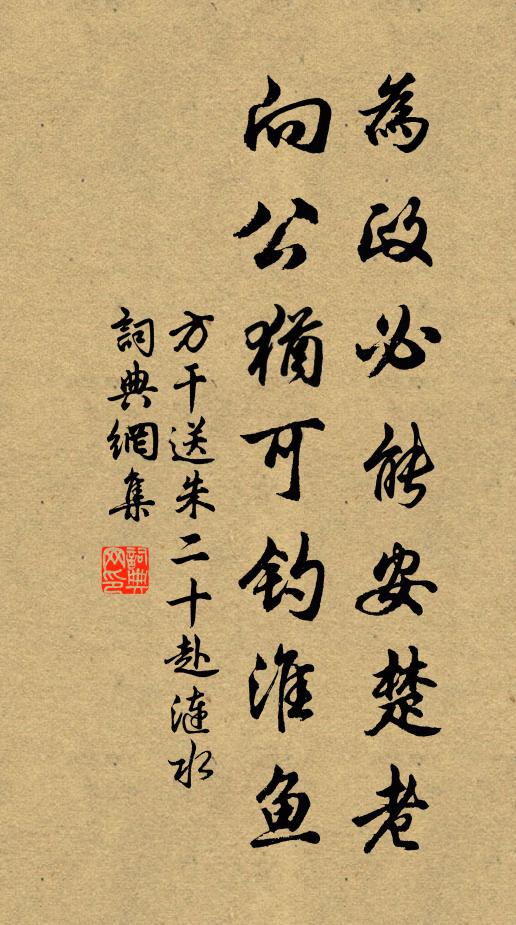 為政必能安楚老
向公猶可釣淮魚
方干送朱二十赴漣水
詞典網集
詞典
网印